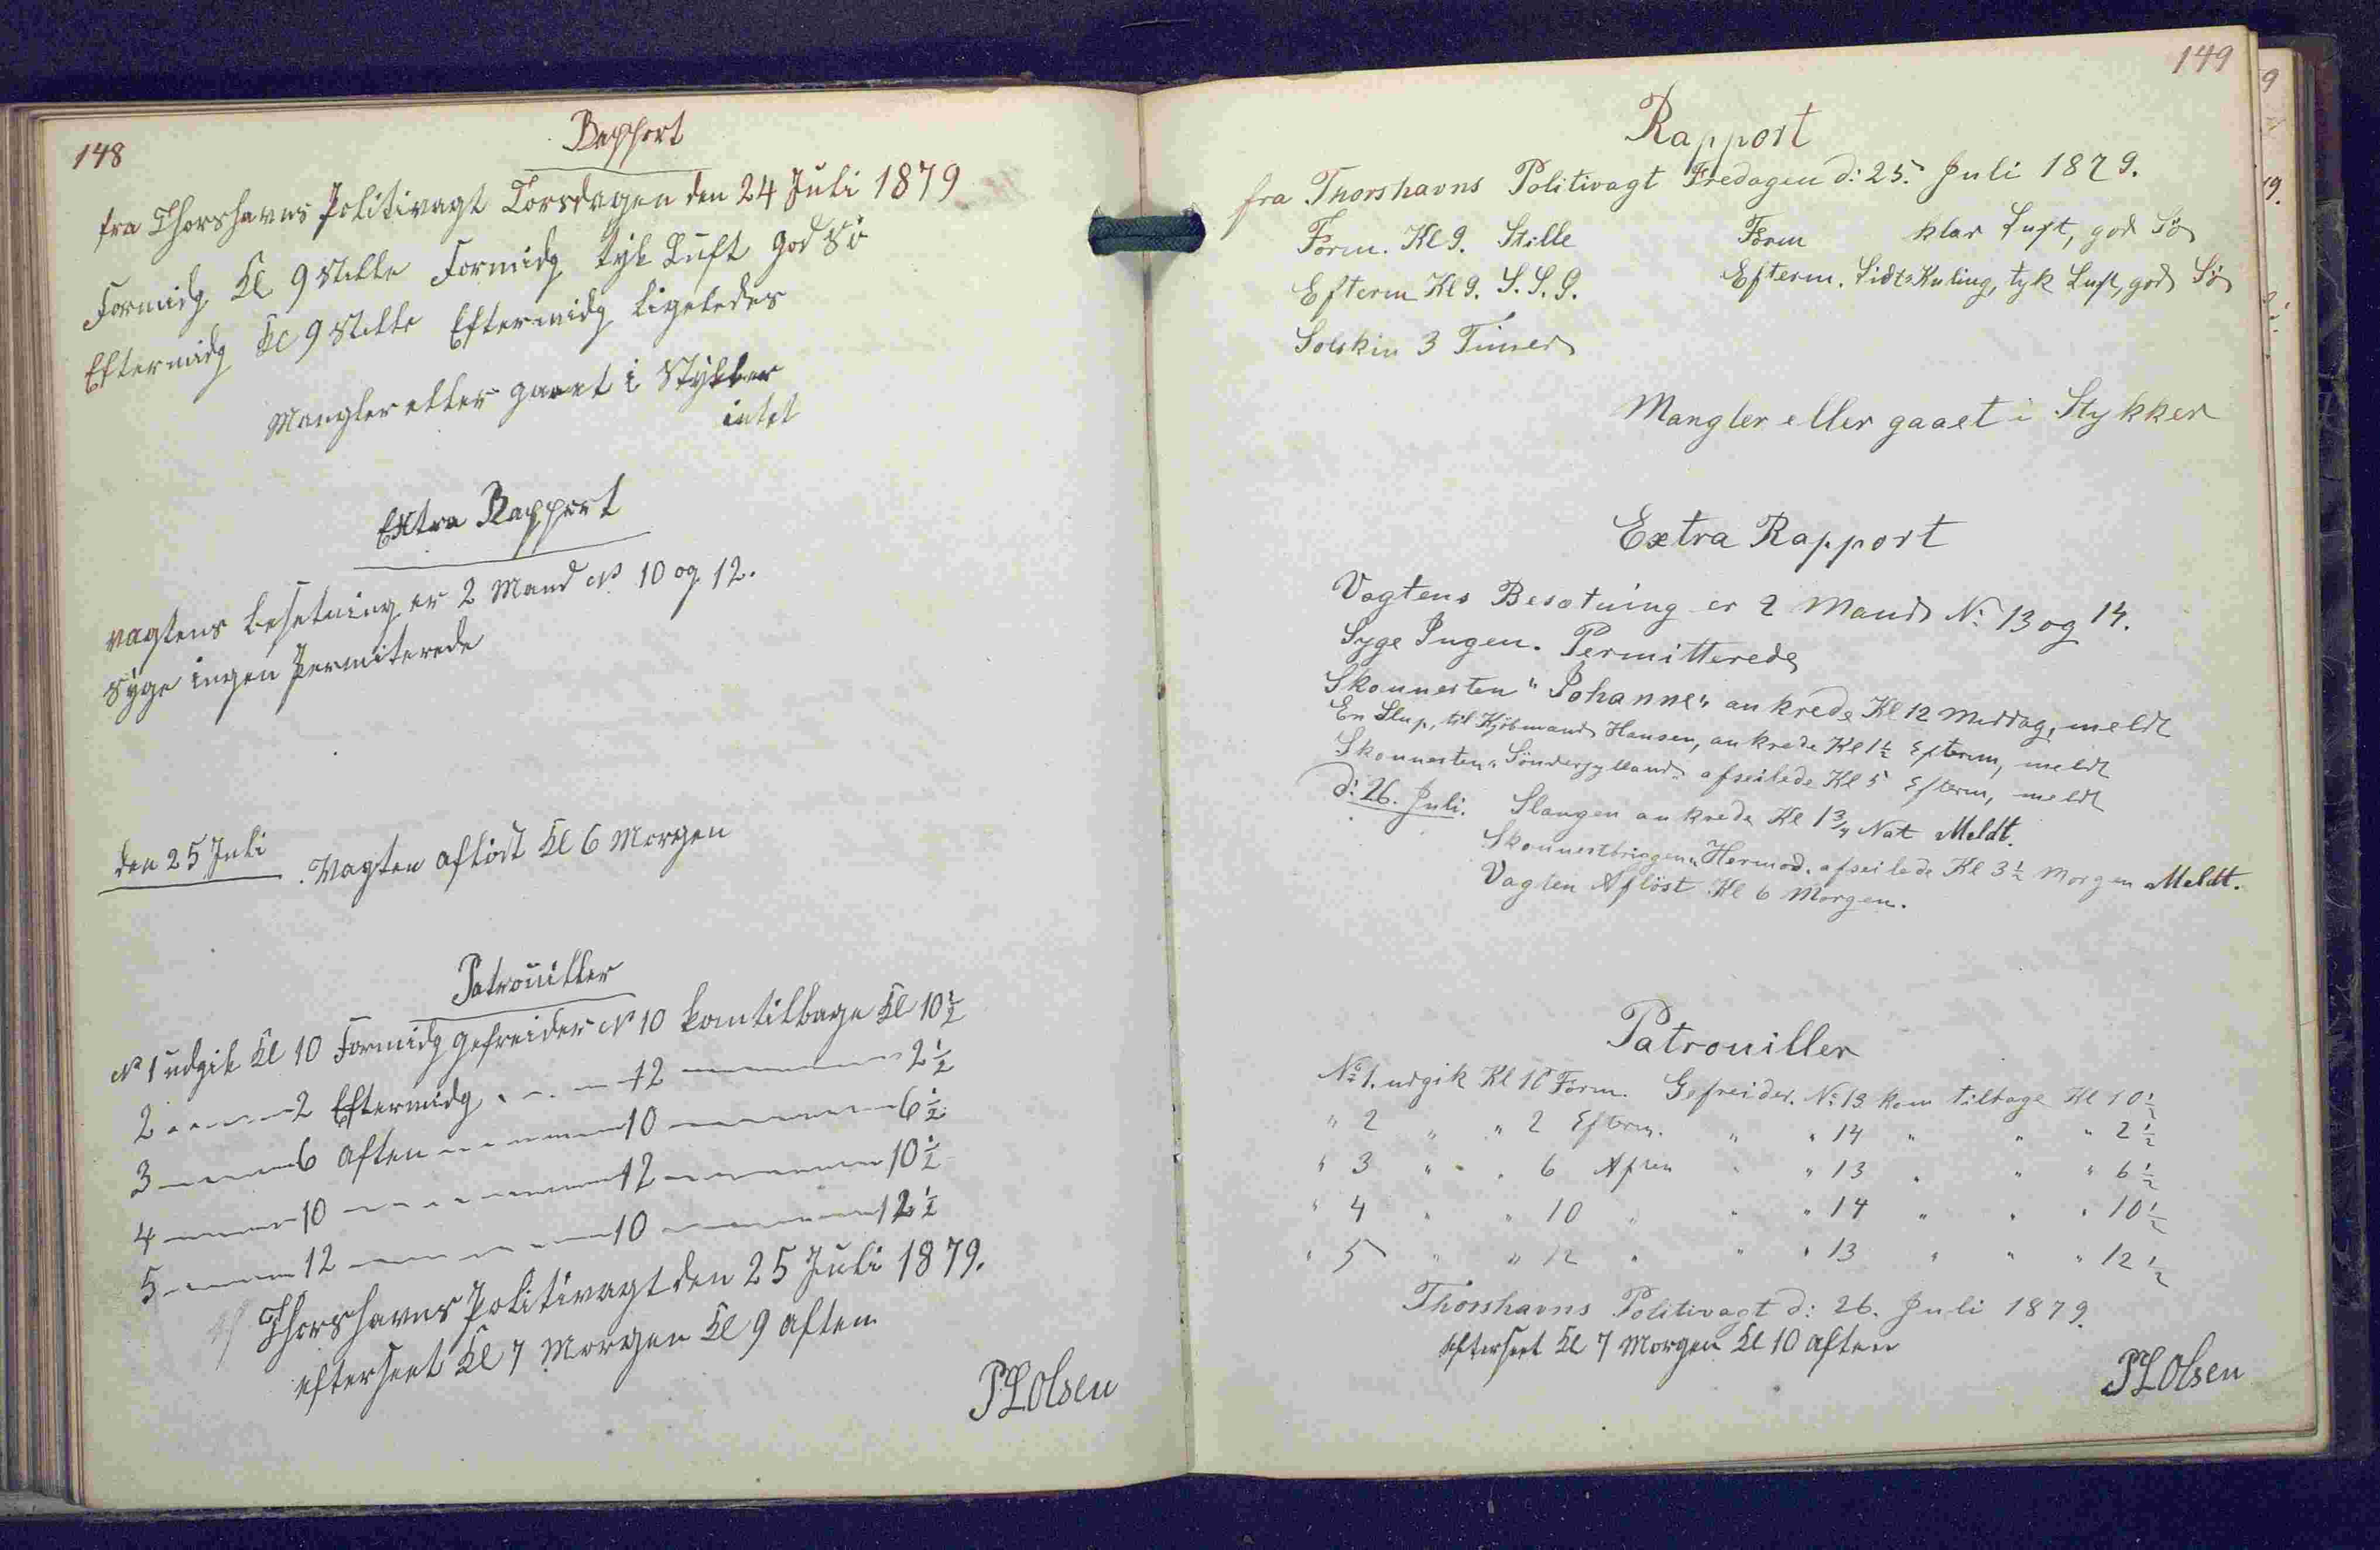 148
Rapport
fra Thorshavns Politivagt Torsdagen den 24 Juli 1879
Formidg Kl 9 Stille Formidg tyk Luft god Sö
Eftermidg Kl 9 Stille Eftermidg ligeledes
Mangler eller gaaet i Stykker
intet
Extra Rapport
Vagtens besetning er 2 Mand No 10 og 12.
Syge ingen Permiterede
den 25 Juli . Vagten aflöst Kl 6 Morgen
Patrouiller
No 1 udgik Kl 10 Formidg Gefreider No 10 kom tilbage Kl 10 1/2
2 - - - - 2 Eftermidg - - - 12 - - - - 2 1/2
3 - - - - 6 Aften - - - - 10 - - - - 6 1/2
4 - - - - 10 - - - - 12 - - - - 10 1/2
5 - - - - 12 - - - - 10 - - - - 12 1/2
Thorshavns Politivagt den 25 Juli 1879.
efterseet Kl 7 Morgen Kl 9 Aften
P L Olsen
149
Rapport
fra Thorshavns Politivagt Fredagen d: 25. Juli 1879.
Form. Kl 9. Stille Form klar Luft, god Sø
Efterm Kl 9. S. S. O. Efterm. Lidt Kuling, tyk Luft, god Sø
Solskin 3 Timer
Mangler eller gaaet i Stykker
Extra Rapport
Vagtens Besætning er 2 Mand No 13 og 14.
Syge Ingen. Permitterede
Skonnerten "Johanne" ankrede Kl 12 Middag, meldt
En Slup, til Kjøbmand Hansen, ankrede Kl 1 1/2 Efterm, meldt
Skonnerten "Sønderjylland" afseilede Kl 5 Efterm, meldt
d: 26. Juli. Slangen ankrede Kl 1 3/4 Nat Meldt.
Skonnertbriggen "Hermod" afseilede Kl 3 1/2 Morgen Meldt.
Vagten Afløst Kl 6 Morgen.
Patrouiller
No 1. udgik Kl 10 Form. Gefreider. No 13 kom tilbage Kl 10 1/2
" 2 " " 2 Efterm. " " 14 " " " 2 1/2
" 3 " " 6 Aften " " 13 " " " 6 1/2
" 4 " " 10 " " " 14 " " " 10 1/2
" 5 " " 12 " " " 13 " " " 12 1/2
Thorshavns Politivagt d: 26. Juli 1879.
efterseet Kl 7 Morgen Kl 10 Aften
P L Olsen